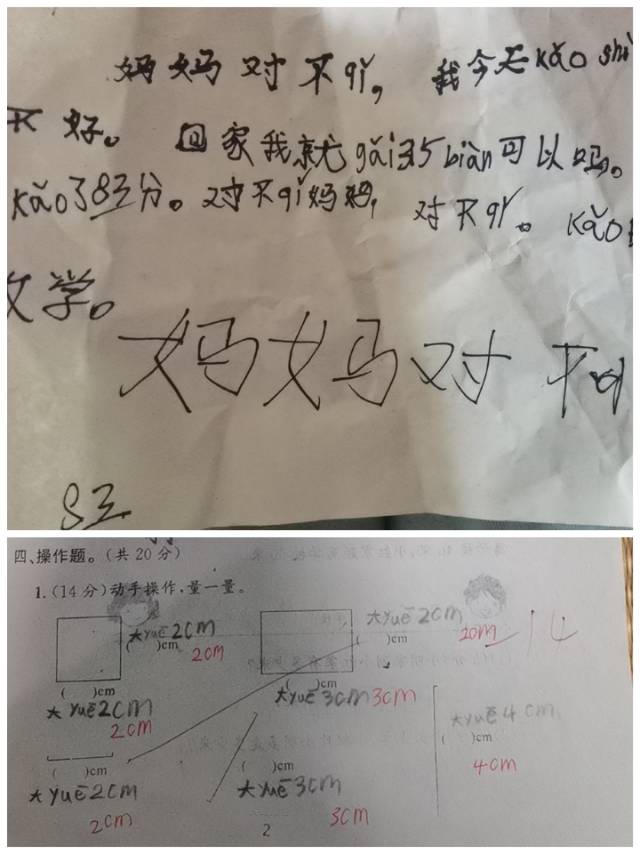 妈妈对不qǐ，我今天kǎo shì
不好。回家我就gǎi 35 biàn可以吗。
kǎo了83分。对不qǐ妈妈，对不qǐ。kǎo
文学。
妈妈对不qǐ
83
四、操作题。(共20分)
1. (14分)动手操作，量一量。
大yuē 2cm
(　)cm
2cm
大yuē 2cm
(　)cm
20m
-14
(　)cm
大yuē 2cm
2cm
(　)cm
大yuē 3cm
3cm
大yuē 4cm
(　)cm
4cm
(　)cm
大yuē 2cm
2cm
(　)cm
大yuē 3cm
3cm
2